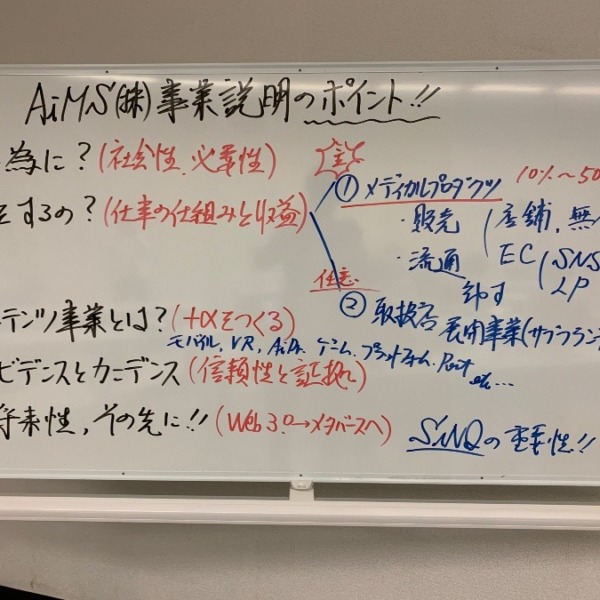 AiMS(株)事業説明のポイント!!
為に?(社会性、必要性)
①メディカルプロダクツ 10%～50
するの?(仕事の仕組みと収益)
・販売 店舗、無
・流通 EC SNS
LP
卸す
任意
②取扱店 展開事業(サブブラン
テンツ事業とは?(+αをつくる)
モバイル, VR, AiDr. ゲーム. プラットフォーム. Point
etc...
ビデンスとカニデンス(信頼性と証拠)
将来性,その先に!!(Web3.0→メタバースへ)
SiNQの重要性!!